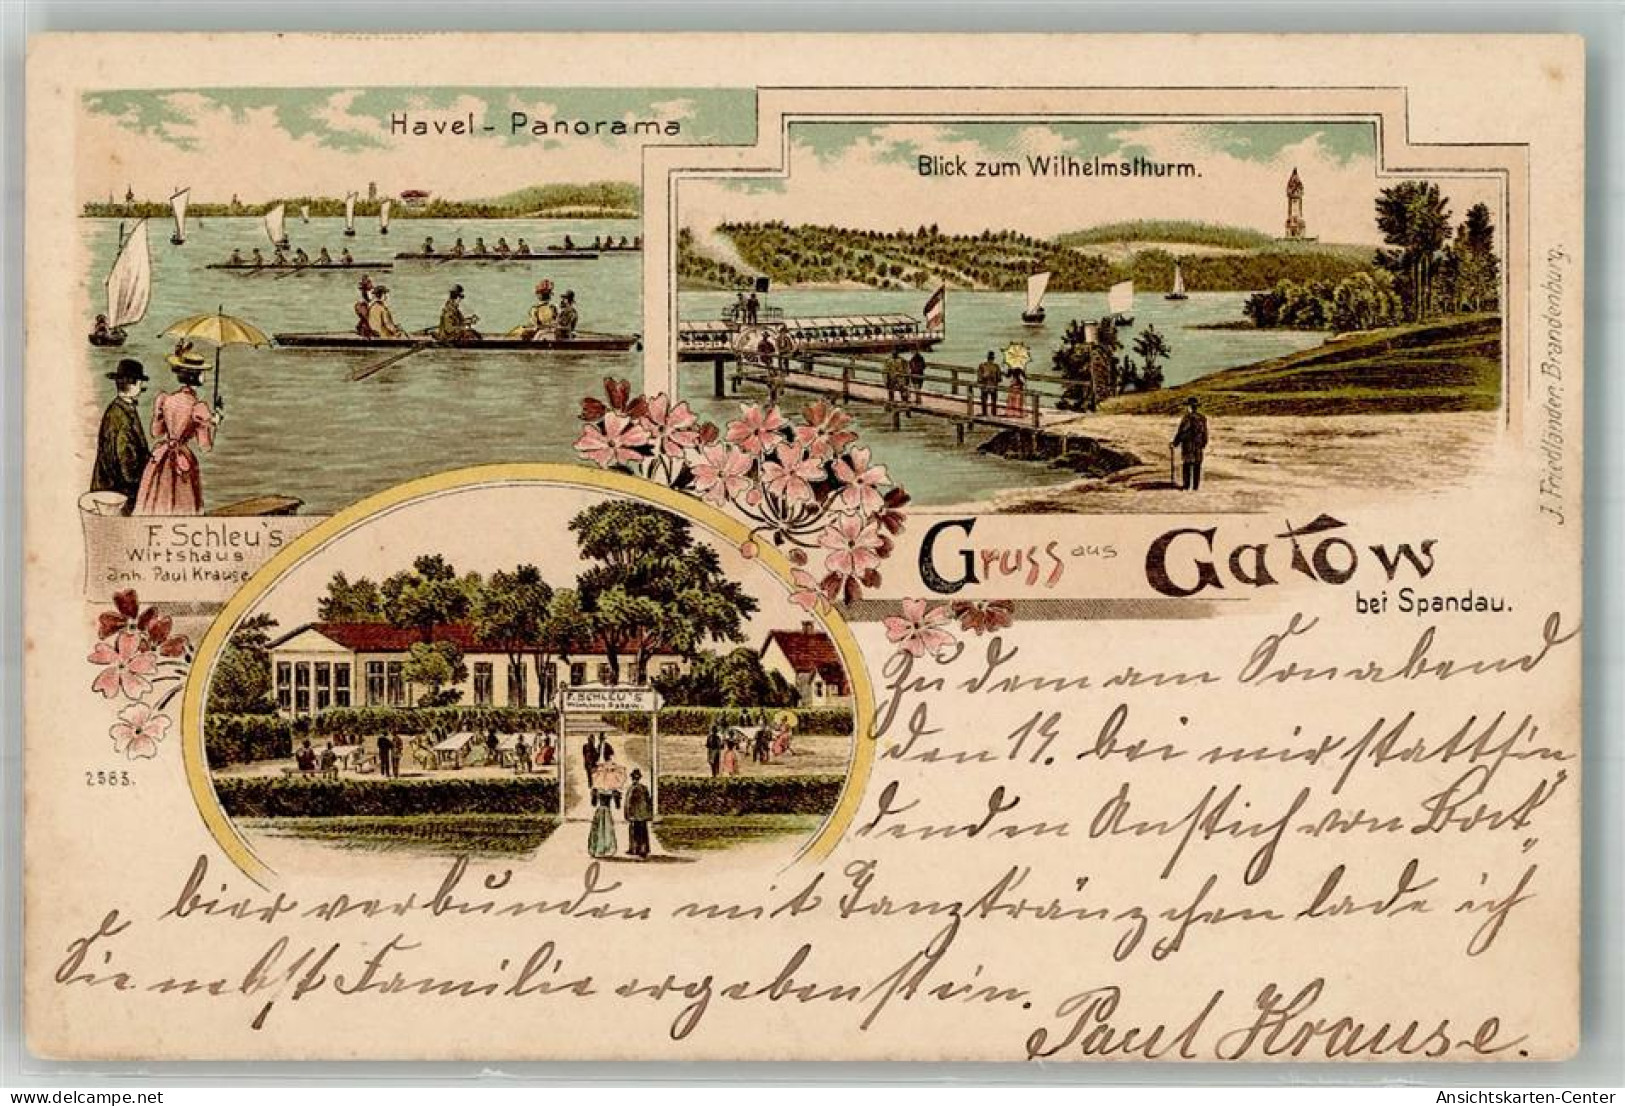 Havel - Panorama
Blick zum Wilhelmsthurm.
J. Friedländer, Brandenburg.
F. Schleu's
Wirtshaus
Inh. Paul Krause.
Gruss aus Gatow
bei Spandau.
F. SCHLEU'S
2583.
Zu dem am Sonabend
den 19. bei mir stattfin
denden Anstich von Bock-
bier verbunden mit Tanzkränzchen lade ich
Sie nebst Familie ergebenst ein.
Paul Krause.
Ansichtskarten-Center